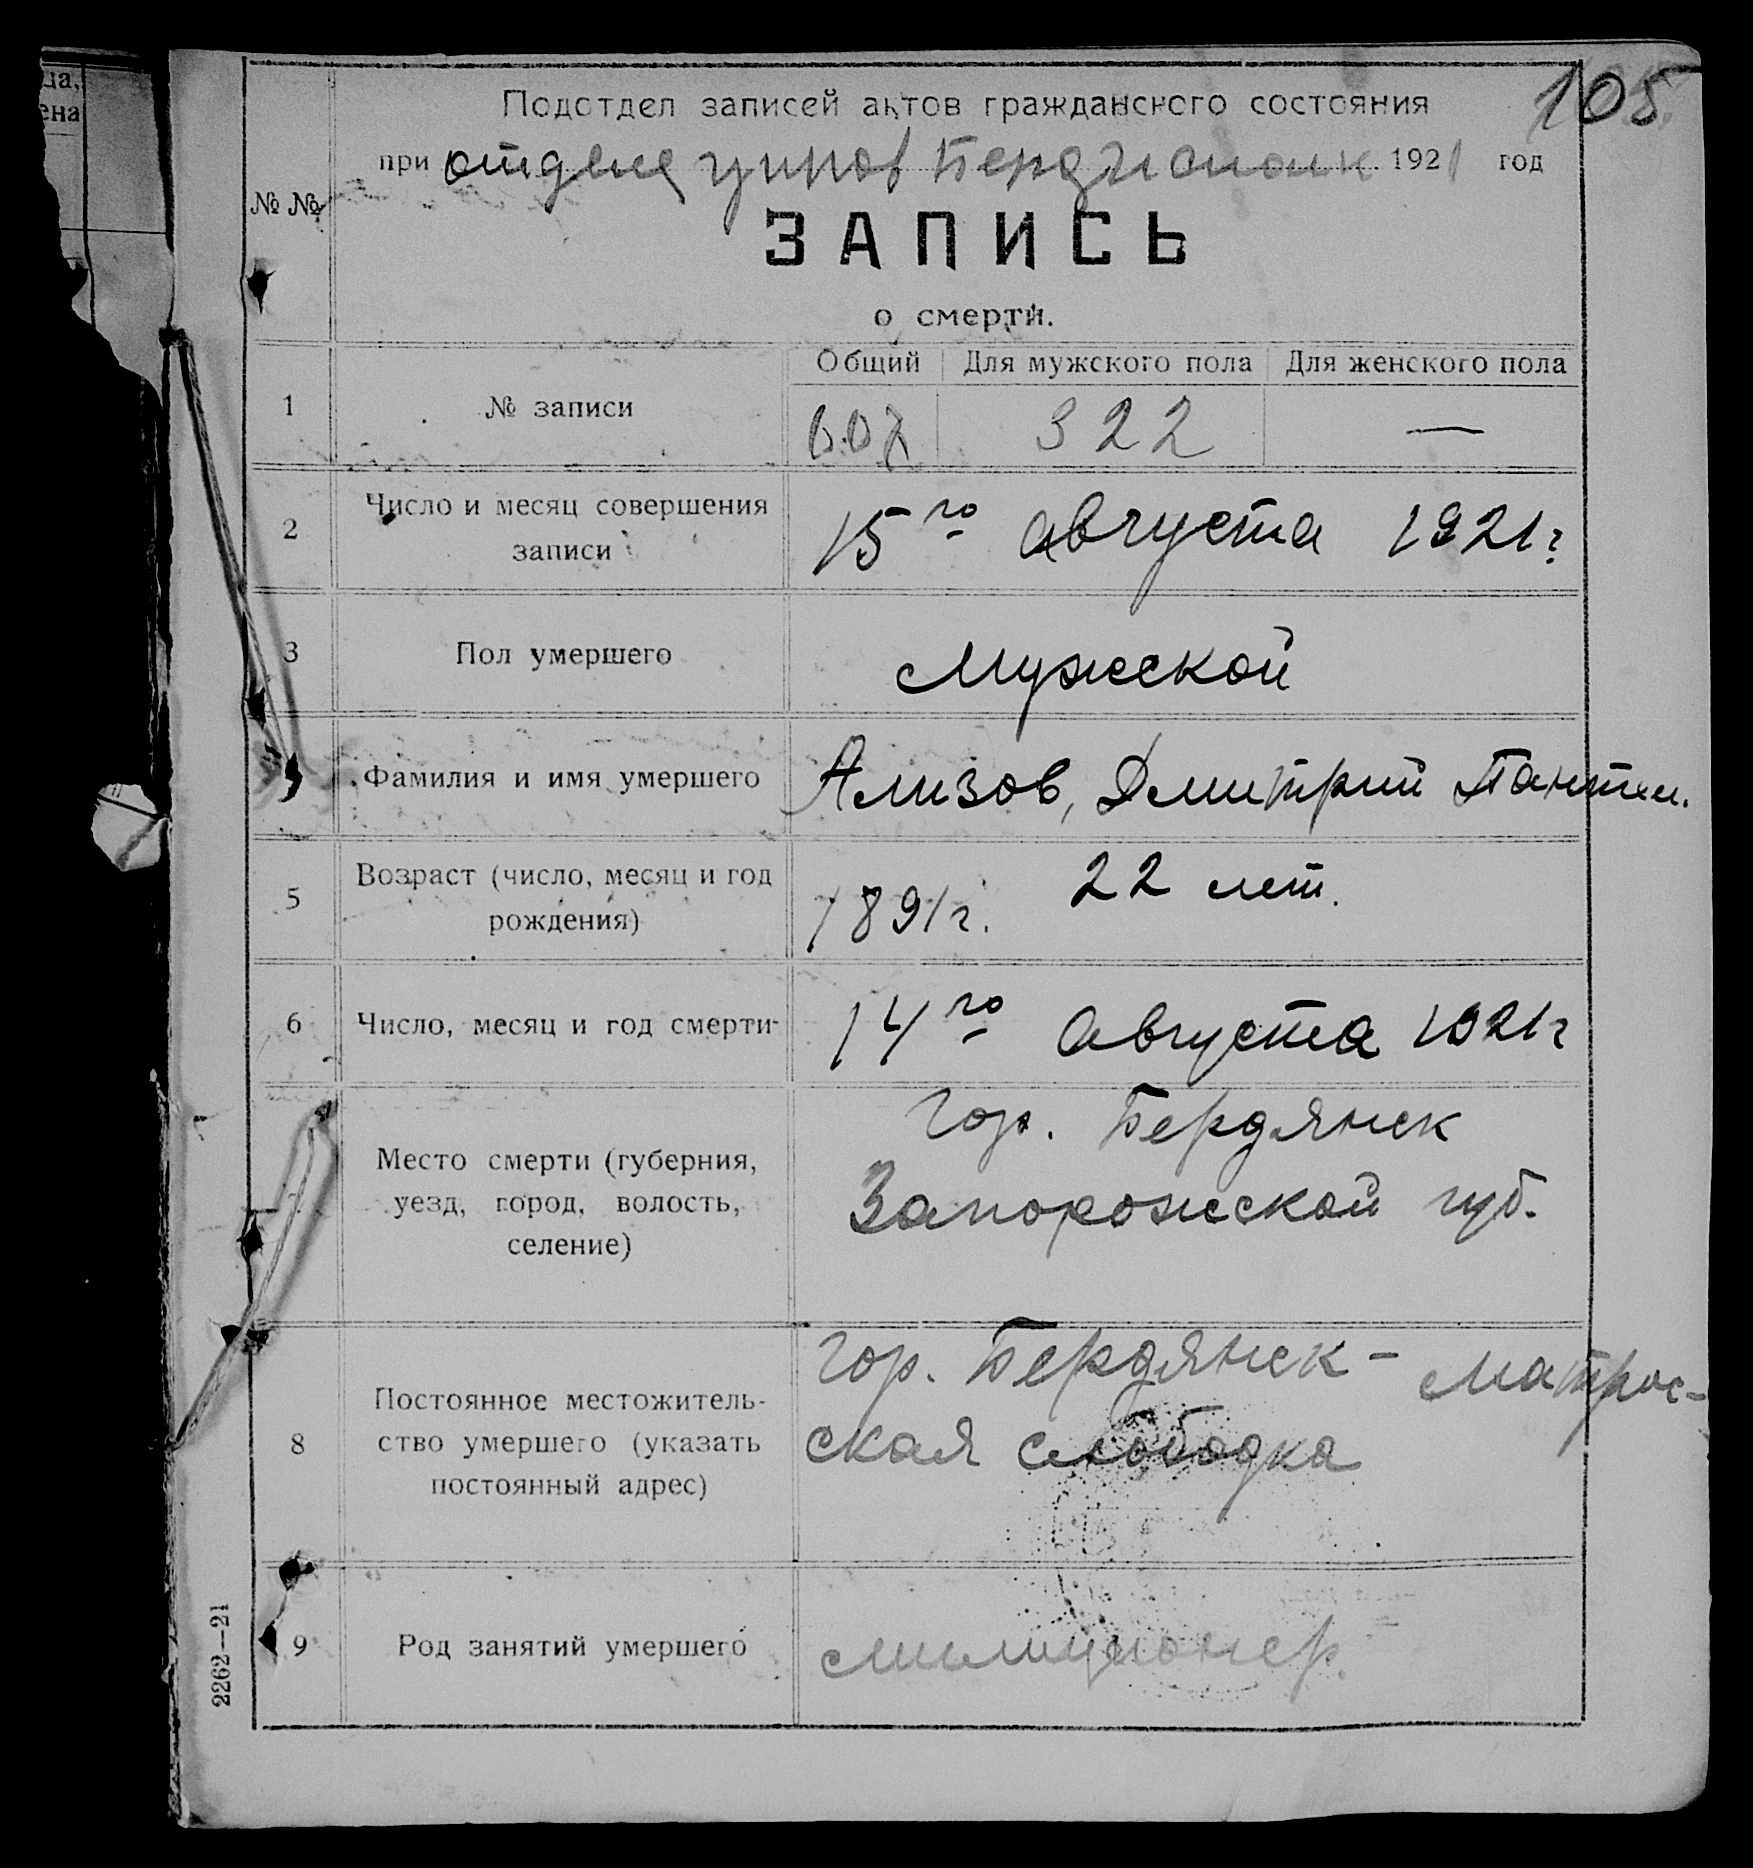 ца,
ена
105
Подотдел записей актов гражданского состояния
при отделе управ Бердянск 1921 год
№ №
ЗАПИСЬ
о смерти.
Общий Для мужского пола Для женского пола
1 № записи 607 322 —
2 Число и месяц совершения
записи
15го августа 1921 г
3 Пол умершего Мужской
Фамилия и имя умершего Ализов, Дмитрий Пантел.
5 Возраст (число, месяц и год
рождения)
1891 г. 22 лет.
6 Число, месяц и год смерти 14го августа 1921 г
Место смерти (губерния,
уезд, город, волость,
селение)
гор. Бердянск
Запорожской губ.
8 Постоянное местожитель-
ство умершего (указать
постоянный адрес)
гор. Бердянск - Матрос-
ская слободка
9 Род занятий умершего милиционер.
2262—21